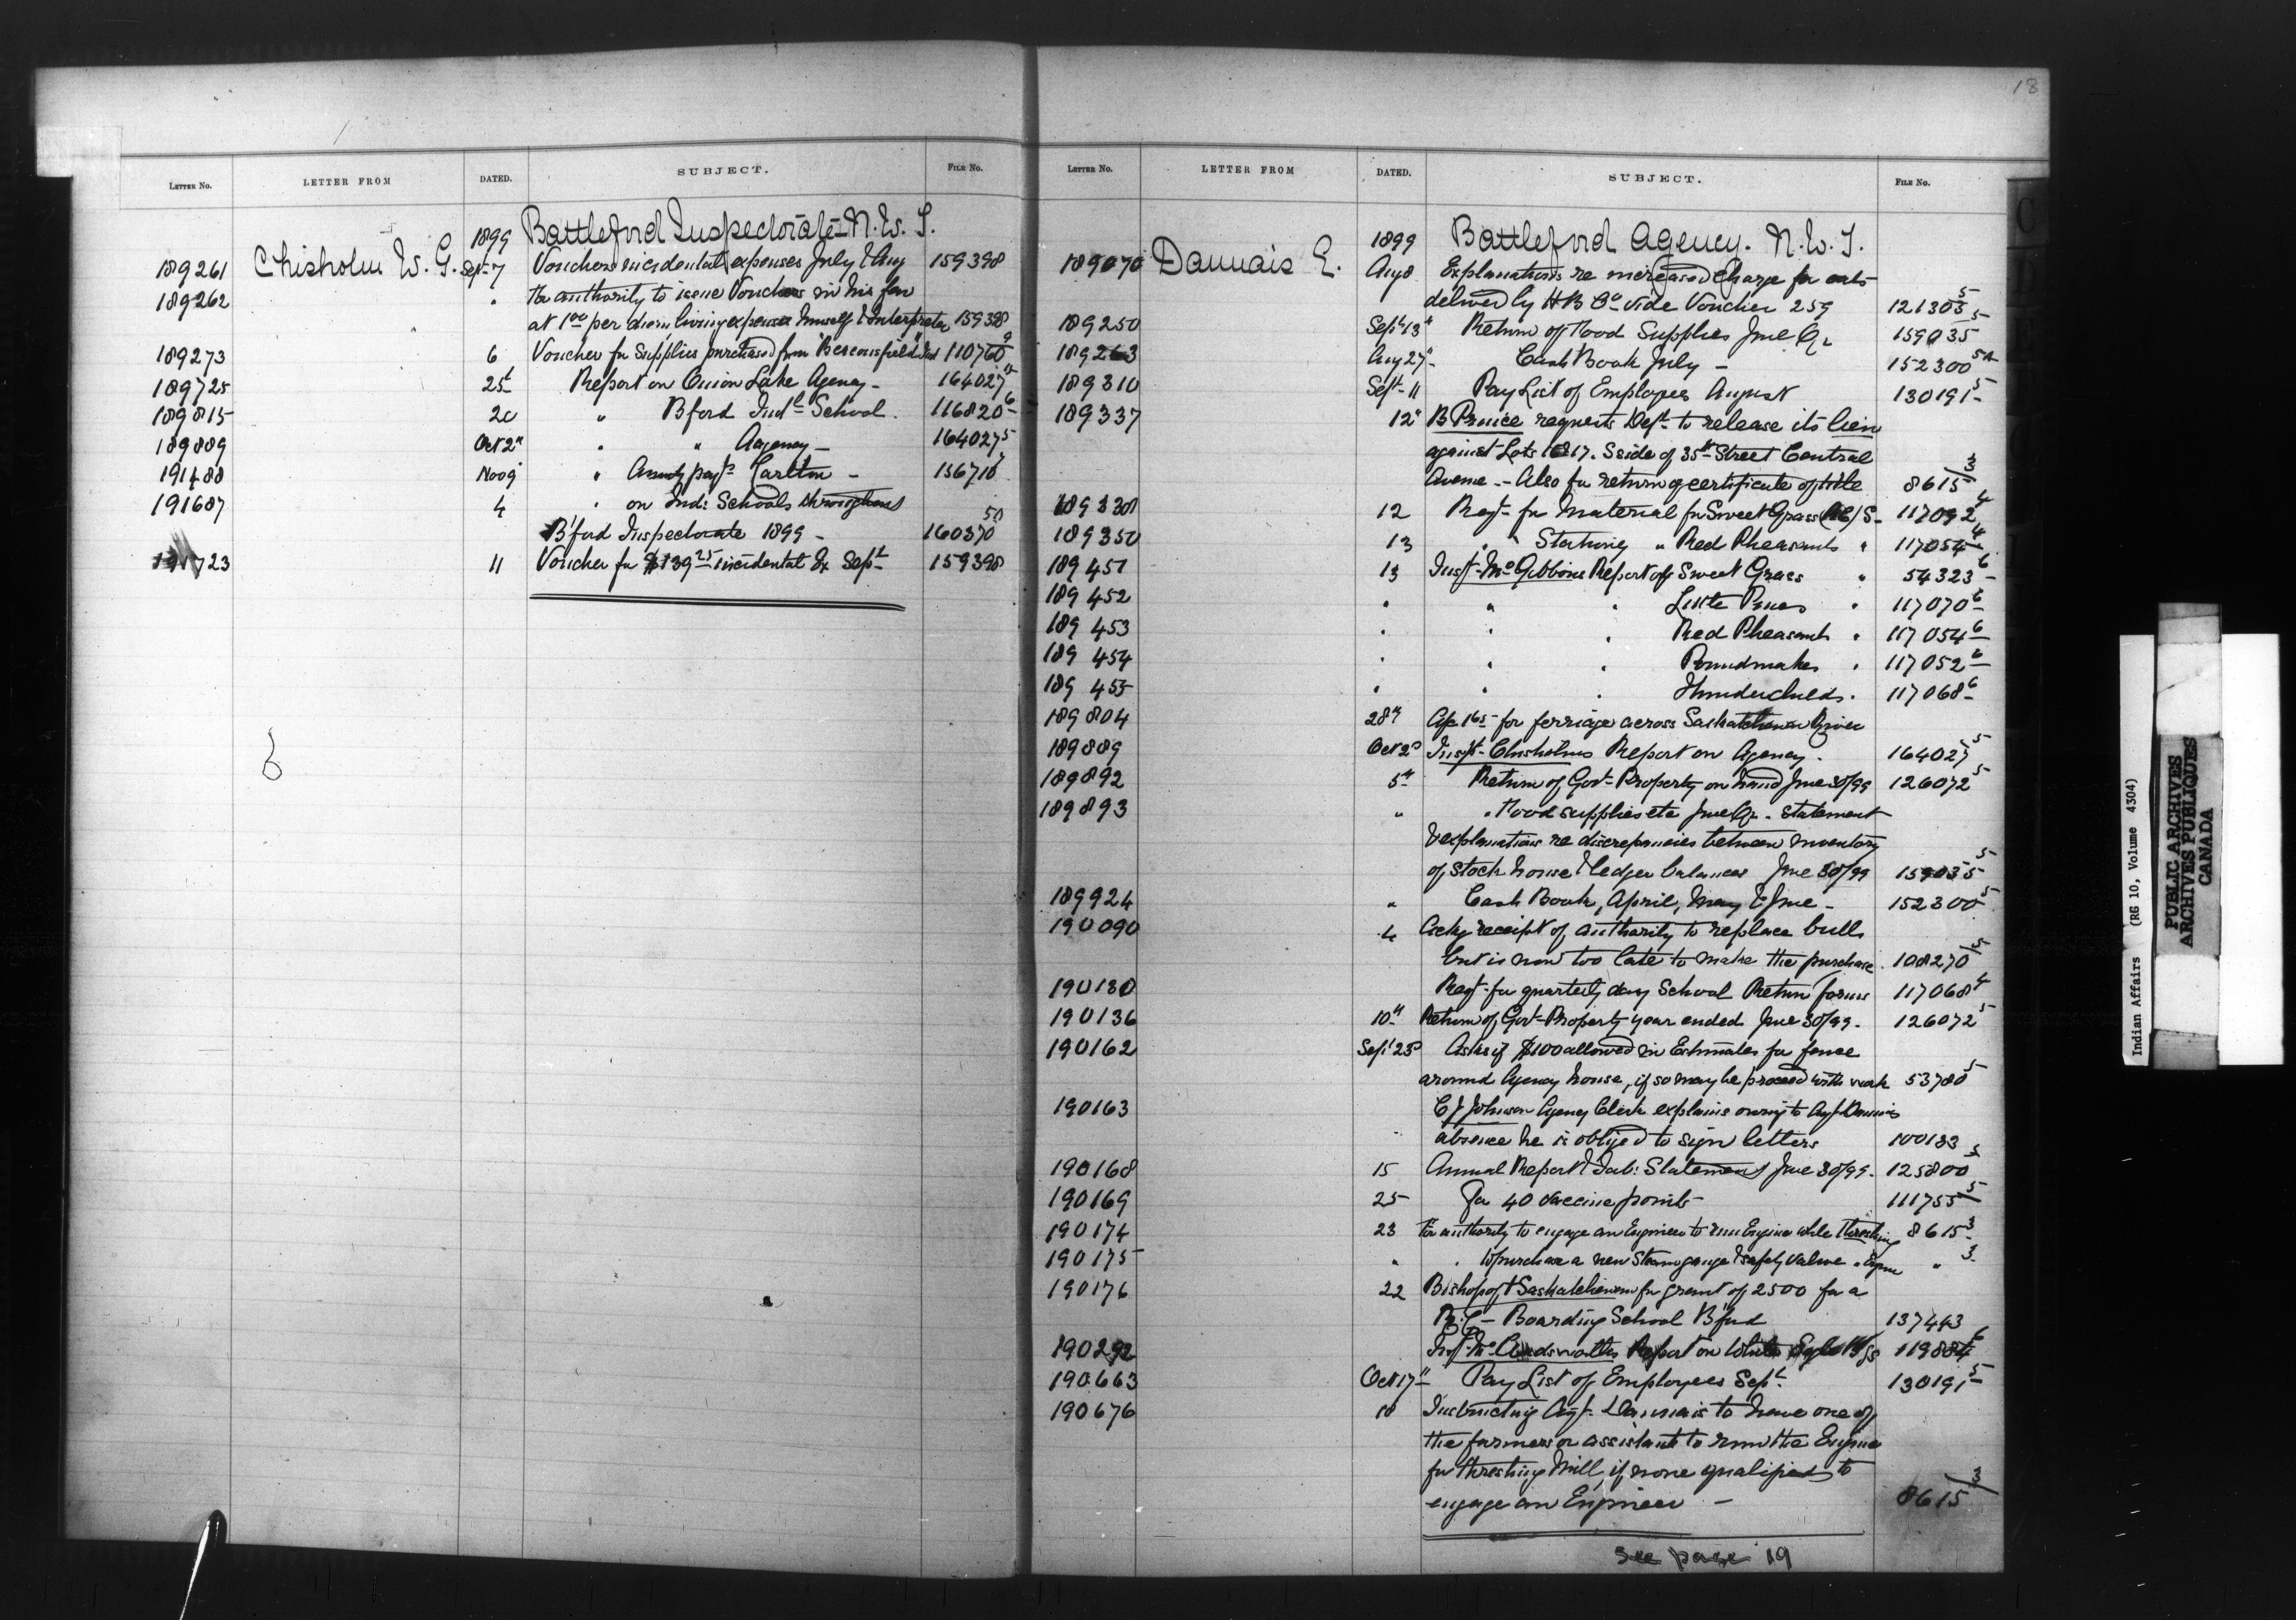 18
LETTER NO. LETTER FROM DATED. SUBJECT. FILE NO.
1899 Battleford Inspectorate N.W.T.
189261 Chisholm W. G. Sept 7 Vouchers incidental expenses July & Aug 159398
189262 " For authority to issue Vouchers in his fav
at 1.00 per diem living expenses himself & Interpreter 159398
189273 6 Voucher for Supplies purchased from "Beaconsfield" Ind 110760 9
189725 25t Report on Onion Lake Agency - 164027 5
189815 20 " Bford Indl School. 116820 6
189889 Oct 2n " " Agency - 164027 5
191488 Nov 9 " Annuity payts Carlton - 156710
191687 4 " on Ind: Schools throughout
B'ford Inspectorate 1899 - 160370 50
191723 11 Voucher for $139 25 incidental Ex Sept 159398
LETTER NO. LETTER FROM DATED. SUBJECT. FILE NO.
1899 Battleford Agency. N.W.T.
189070 Daunais E. Aug 8 Explanations re increased charge for oats
delived by H B Co vide Voucher 259 121305 5
189250 Sept 13t Return of Food Supplies June Qr 159035 5
189263 Aug 27 Cash Book July - 152300
189310 Sept 11 Pay List of Employees August 130191 5
189337 12" B Prince requests Dept to release its lien
against Lots 16 & 17. S side of 35th Street Central
Avenue - Also for return of certificate of title 8615/3
189338 12 Reqt for Material for Sweet Grass (RC) S- 117092 4
189350 13 " " Stationery " Red Pheasants " 117054 4
189451 13 Inspt McGibbons Report of Sweet Grass " 54323 6
189452 " " " Little Pines " 117070 6
189453 " " " Red Pheasants " 117054 6
189454 " " " Poundmaker " 117052 6
189455 " " " Thunderchilds " 117068 6
189804 28th A/c 165 for ferriage across Saskatchewan River
189889 Oct 2n Inspt Chisholms Report on Agency. 164027 5
189892 5th Return of Govt Property on hand June 30/99 126072 5
189893 " " Food supplies etc June Qr. Statement
& explanations re discrepancies between inventory
of stock house & ledger balances June 30/99 159035 5
189924 " Cash Book, April, May & June - 152300 5
190090 4 Ackg receipt of authority to replace bulls
but is now too late to make the purchase. 108270
190130 Reqt for quarterly day School Return forms 117068 4
190136 10th Return of Govt Property year ended June 30/99. 126072 5
190162 Sept 25 Asks if $100 allowed in Estimates for fence
around Agency house, if so may he proceed with work 53780 5
190163 C J Johnson Agency Clerk explains owing to Agt Daunais
absence he is obliged to sign letters 100133
190168 15 Annual Report & Tab: Statement June 30/99. 125800 5
190169 25 For 40 vaccine points 111755 5
190174 23 For authority to engage an Engineer to run Engine while threshing 8615 3
190175 " " to purchase a new Steam gauge & safety Valve " Engine " 3
190176 22 Bishop of Saskatchewan for grant of 2500 for a
R.C - Boarding School B'ford 137443
190292 Report on White 119884 6
190663 Oct 17th Pay List of Employees Sept. 130191 5
190676 18 Instructing Agt. Daunais to have one of
the farmers or assistants to run the Engine
for threshing Mill, if none qualified to
engage an Engineer - 8615/3
see page 19
C
Indian Affairs (RG 10, Volume 4304)
PUBLIC ARCHIVES
ARCHIVES PUBLIQUES
CANADA